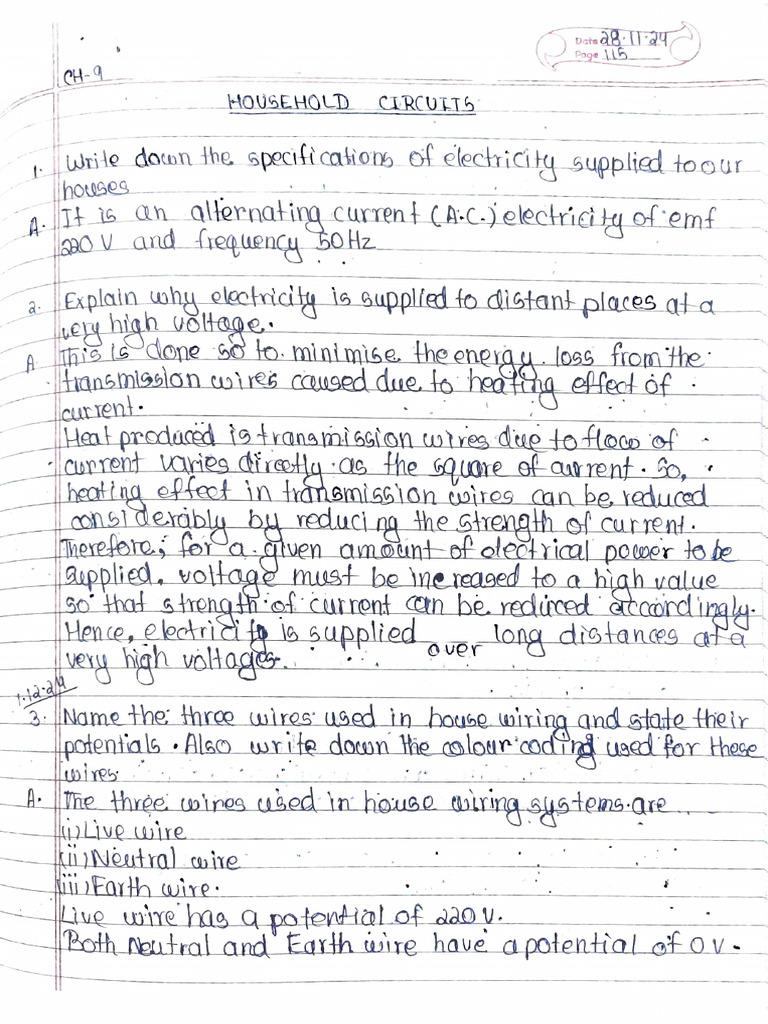 Date 28.11.24
Page 115
CH-9
HOUSEHOLD CIRCUITS
1. Write down the specifications of electricity supplied to our
houses
A. It is an alternating current (A.C.) electricity of emf
220 V and frequency 50Hz
2. Explain why electricity is supplied to distant places at a
very high voltage.
A This is done so to minimise the energy loss from the
transmission wires caused due to heating effect of
current.
Heat produced is transmission wires due to flow of
current varies directly as the square of current. So,
heating effect in transmission wires can be reduced
considerably by reducing the strength of current.
Therefore, for a given amount of electrical power to be
supplied, voltage must be increased to a high value
so that strength of current can be reduced accordingly.
Hence, electricity is supplied over long distances at a
very high voltages.
1.12.24
3. Name the three wires used in house wiring and state their
potentials. Also write down the colour coding used for these
wires.
A. The three wires used in house wiring systems are
(i) Live wire
(ii) Neutral wire
(iii) Earth wire.
Live wire has a potential of 220 V.
Both Neutral and Earth wire have a potential of 0 V.